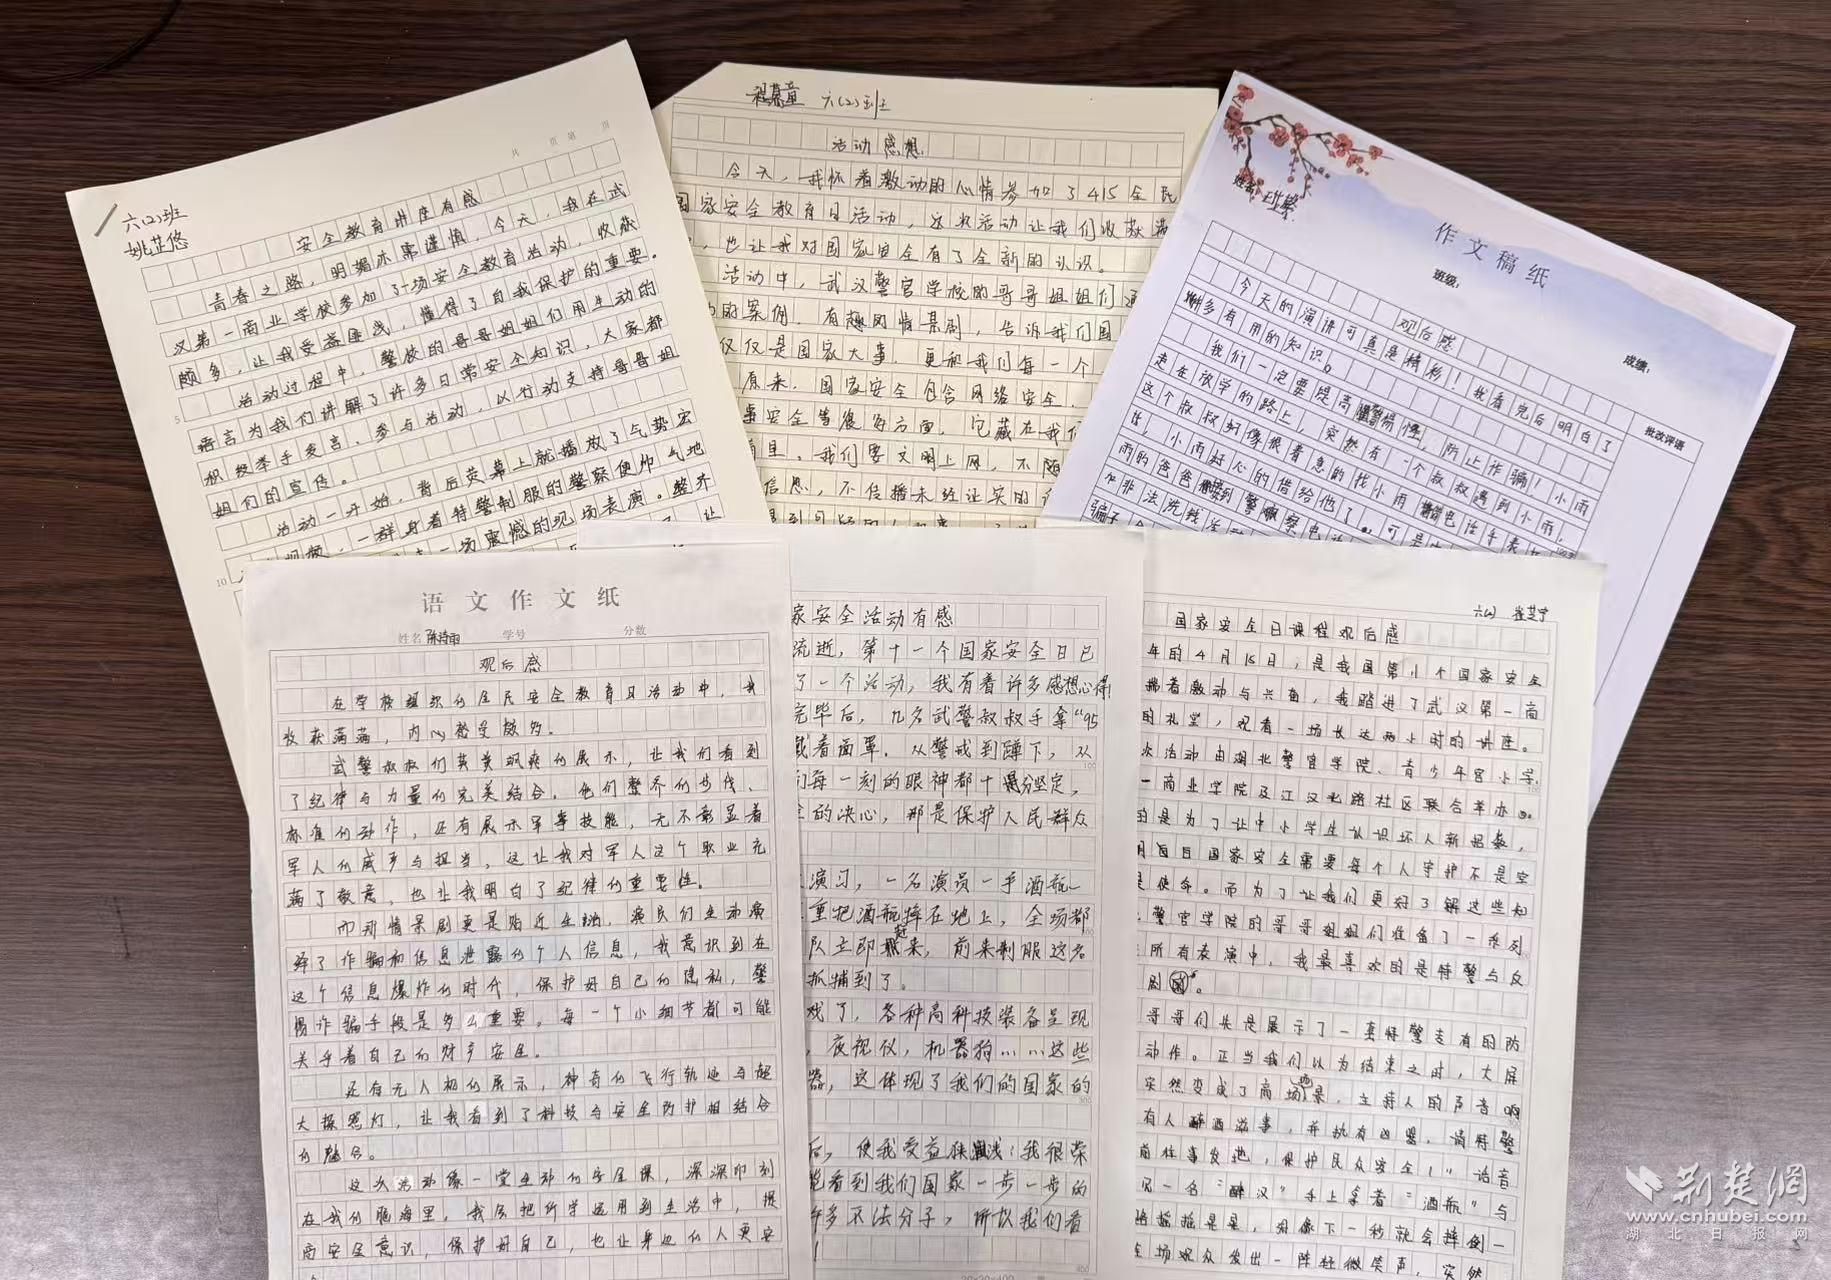 六(2)班
姚芷悠
共 页 第 页
安全教育讲座有感
青春之路，明媚亦需谨慎，今天，我在武
汉第一商业学校参加了一场安全教育活动，收获
颇多，让我受益匪浅，懂得了自我保护的重要。
活动过程中，警校的哥哥姐姐们用生动的
语言为我们讲解了许多日常安全知识，大家都
积极举手发言、参与活动，以行动支持哥哥姐
姐们的宣传。
活动一开始，背后荧幕上就播放了气势宏
视频，一群身着特警制服的警察便帅气地
一场震撼的现场表演。整齐
5
10
程慕童 六(2)班
活动感想
今天，我怀着激动的心情参加了415全民
国家安全教育日活动，这次活动让我们收获满
，也让我对国家安全有了全新的认识。
活动中，武汉警官学校的哥哥姐姐们通
的案例，有趣的情景剧，告诉我们国
仅仅是国家大事，更和我们每一个
原来，国家安全包含网络安全，
事安全等很多方面，它藏在我们
里。我们要文明上网，不随
信息，不传播未经证实的
作文稿纸
姓名：
班级：
成绩：
批改评语
观后感
今天的演讲可真是精彩！我看完后明白了
许多有用的知识。
我们一定要提高警惕，防止诈骗！小雨
走在放学的路上，突然有一个叔叔遇到小雨，
这个叔叔好像很着急的找小雨借电话手表
，小雨好心的借给他了。可是
雨的爸爸接到警察电话
非法洗钱活动
骗子
100字
语文作文纸
姓名 陈诗雨 学号 分数
观后感
在学校组织的全民安全教育日活动中，我
收获满满，内心感受颇多。
武警叔叔们英姿飒爽的展示，让我们看到
了纪律与力量的完美结合。他们整齐的步伐、
标准的动作，还有展示军事技能，无不彰显着
军人的威严与担当，这让我对军人这个职业充
满了敬意，也让我明白了纪律的重要性。
而那情景剧更是贴近生活，演员们生动演
绎了诈骗和信息泄露的个人信息，我意识到在
这个信息爆炸的时代，保护好自己的隐私，警
惕诈骗手段是多么重要，每一个小细节都可能
关乎着自己的财产安全。
还有无人机的展示，神奇的飞行轨迹与超
大探照灯，让我看到了科技与安全防护相结合
的魅力。
这次活动像一堂生动的安全课，深深印刻
在我们脑海里。我会把所学运用到生活中，提
高安全意识，保护好自己，也让身边的人更安
家安全活动有感
流逝，第十一个国家安全日已
了一个活动，我有着许多感想心得！
完毕后，几名武警叔叔手拿“95
戴着面罩，从警戒到蹲下，从
们每一刻的眼神都十分坚定，
全的决心，那是保护人民群众
演习，一名演员一手酒瓶
重把酒瓶摔在地上，全场都
队立即赶来，前来制服这名
抓捕到了。
戏了，各种高科技装备呈现
，夜视仪，机器狗……这些
器，这体现了我们的国家的
后，使我受益匪浅；我很荣
能看到我们国家一步一步的
许多不法分子，所以我们看
！
100
300
400
20×20=400
六(2) 崔芝宁
国家安全日课程观后感
年的4月15日，是我国第十个国家安全
揣着激动与兴奋，我踏进了武汉第一商
的礼堂，观看一场长达两小时的讲座。
次活动由湖北警官学院、青少年宫小学，
一商业学院及江汉北路社区联合举办
的是为了让中小学生认识坏人新招数，
明白国家安全需要每个人守护不是空
是使命。而为了让我们更好了解这些知
警官学院的哥哥姐姐们准备了一系列
所有表演中，我最喜欢的是特警与反
剧。
哥哥们先是展示了一套特警专有的防
动作。正当我们以为结束之时，大屏
突然变成了商场场景，主持人的声音响
有人醉酒滋事，并执有凶器，请特警
前往事发地，保护民众安全！”话音
见一名“醉汉”手上拿着“酒瓶”与
摇摇晃晃，好像下一秒就会摔倒一
全场观众发出一阵轻微笑声，突然
荆楚网
www.cnhubei.com
湖北日报网